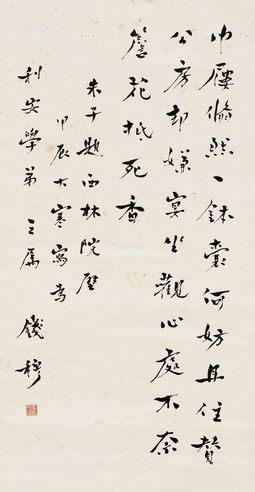 巾屨翛然一鉢囊何妨且住贊
公房却嫌宴坐觀心處不奈
簷花抵死香
朱子題西林院壁
甲辰大寒寫為
利安學弟 之屬 錢穆